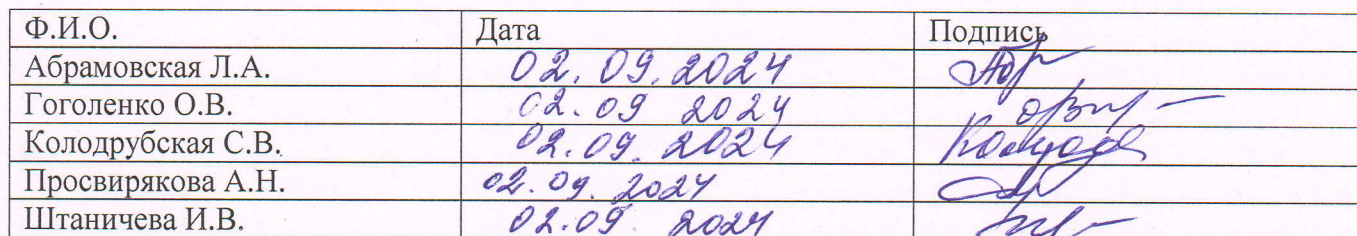 Ф.И.О. Дата Подпись
Абрамовская Л.А. 02.09.2024
Гоголенко О.В. 02.09 2024
Колодрубская С.В. 02.09.2024
Просвирякова А.Н. 02.09.2024
Штаничева И.В. 02.09. 2024